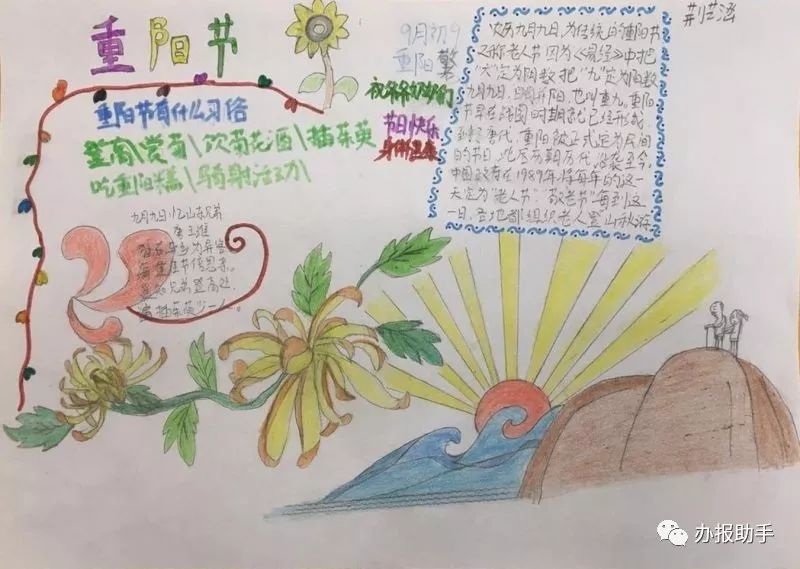 重阳节
9月初9
重阳
荆艺涵
祝爷爷奶奶们
节日快乐
身体健康
重阳节有什么习俗
登高\赏菊\饮菊花酒\插茱萸
吃重阳糕\骑射活动\
农历九月九日,为传统的重阳节
又称老人节因为《易经》中把
"六"定为阴数把"九"定为阳数
九月九日,日月并阳,也叫重九,重阳
节早在战国时期就已经形成,
到唐代,重阳被正式定为民间
的节日,此后历朝历代沿袭至今,
中国政府在1989年,将每年的这一
天定为"老人节"敬老节"每到这
一日,各地都组织老人登山秋游
九月九日忆山东兄弟
唐王维
独在异乡为异客
每逢佳节倍思亲。
遥知兄弟登高处
遍插茱萸少一人。
办报助手